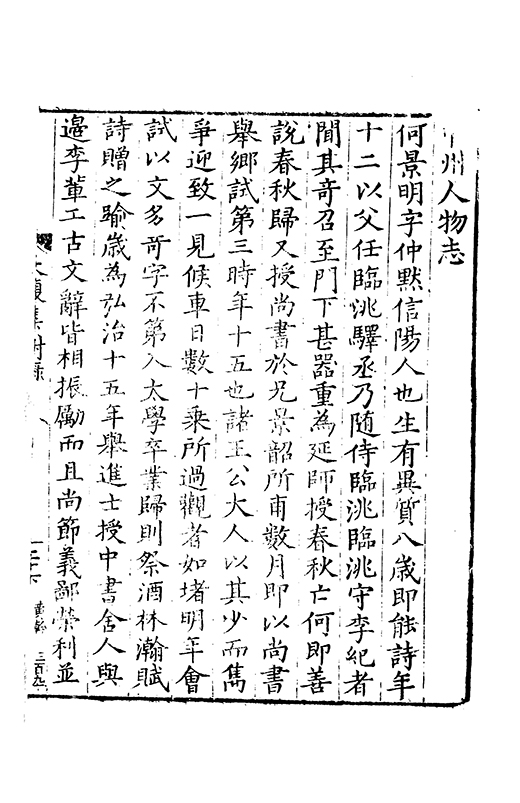 中州人物志
何景明字仲默信陽人也生有異質八歲即能詩年
十二以父任臨洮驛丞乃隨侍臨洮臨洮守李紀者
聞其奇召至門下甚器重為延師授春秋亡何即善
說春秋歸又授尚書於兄景韶所甫數月即以尚書
舉鄉試第三時年十五也諸王公大人以其少而雋
爭迎致一見候車日數十乘所過觀者如堵明年會
試以文多奇字不第入太學卒業歸則祭酒林瀚賦
詩贈之踰歲為弘治十五年舉進士授中書舍人與
邊李輩工古文辭皆相振勵而且尚節義鄙榮利並
大復集附錄